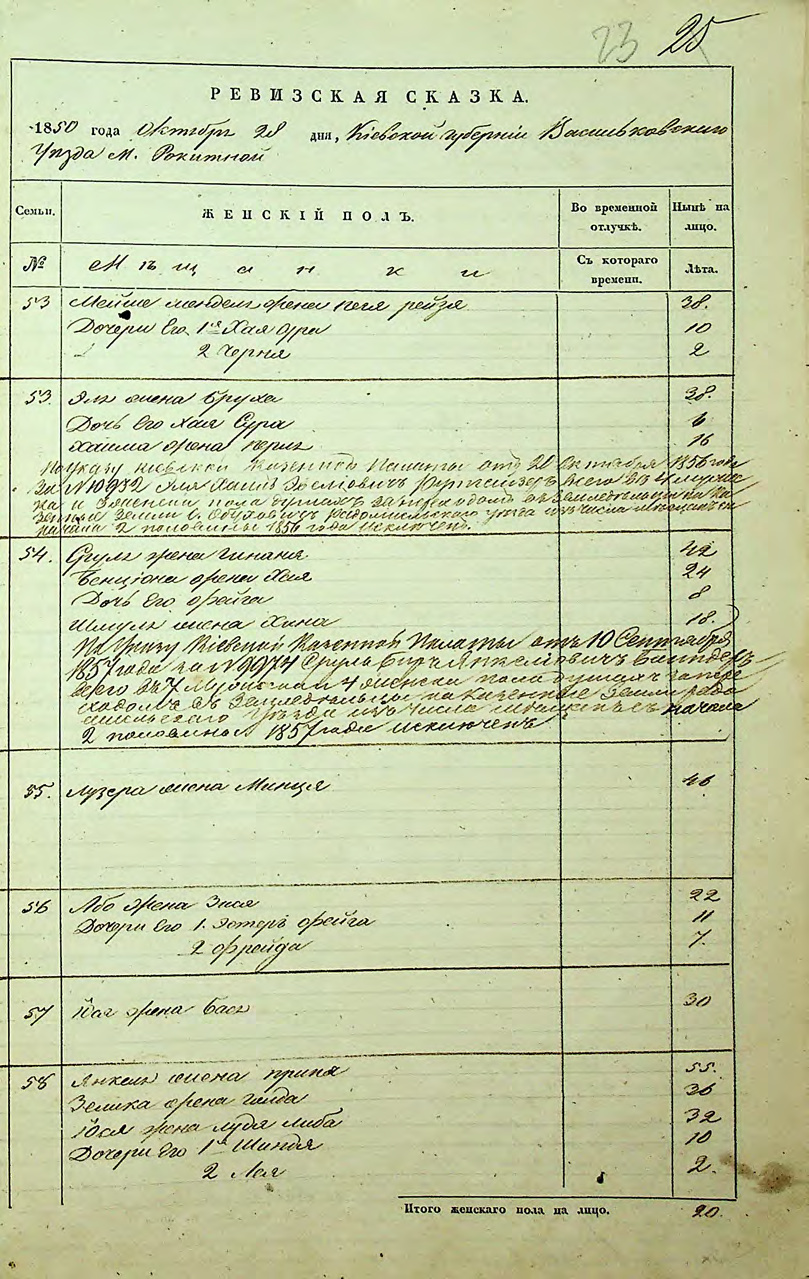 23 25
РЕВИЗСКАЯ СКАЗКА.
1850 года Октября 28 дня, Кіевской губерніи Васильковскаго
Уѣзда м. Рокитной
Семьи. ЖЕНСКІЙ ПОЛЪ. Во временной отлучкѣ. Нынѣ на лицо.
№ Мѣщанки Съ котораго времени. Лѣта.
53 жена рейзя 38.
Дочери Его 1я Хая Сура 10
2 Черня 2
53. жена Бруха 38.
Дочь Его Хая Сура 6
Хаима жена Перль 16
По Указу Кіевской Казенной Палаты отъ Октября 1856 года
За N 10932 Хаимъ всего въ 4 мужск
и женска пола душахъ за переходомъ въ Земледѣльцы на ка
зенные Земли Радомысльского уѣзда изъ числа мѣщанъ съ
начала 2 половины 1856 года исключенъ.
54. Сруля жена 42
Бенціона жена Хая 24
Дочь Его Фейга 8
Шмуля жена Хина 18.
По Указу Кіевской Казенной Палаты отъ 10 Сентября
1857 года за N 9974 Сруль Янкелевичъ
всего въ 7 Мужскаго и 4 женска пола душахъ за пере
ходомъ въ Земледѣльцы на Казенные Земли Радо
мысльскаго уѣзда изъ числа мѣщанъ съ начала
2 половины 1857 года исключенъ
55. Лузера жена Минця 46
56 Абы жена Зися 22
Дочери Его 1. Эстеръ Фейга 11
2 Фрейда 7.
57 жена Бася 30
58 Янкеля жена 55.
Зелика жена Голда 36
жена Либа 32
Дочери Его 1я Шиндля 10
2 Лея 2.
Итого женскаго пола на лицо. 20.